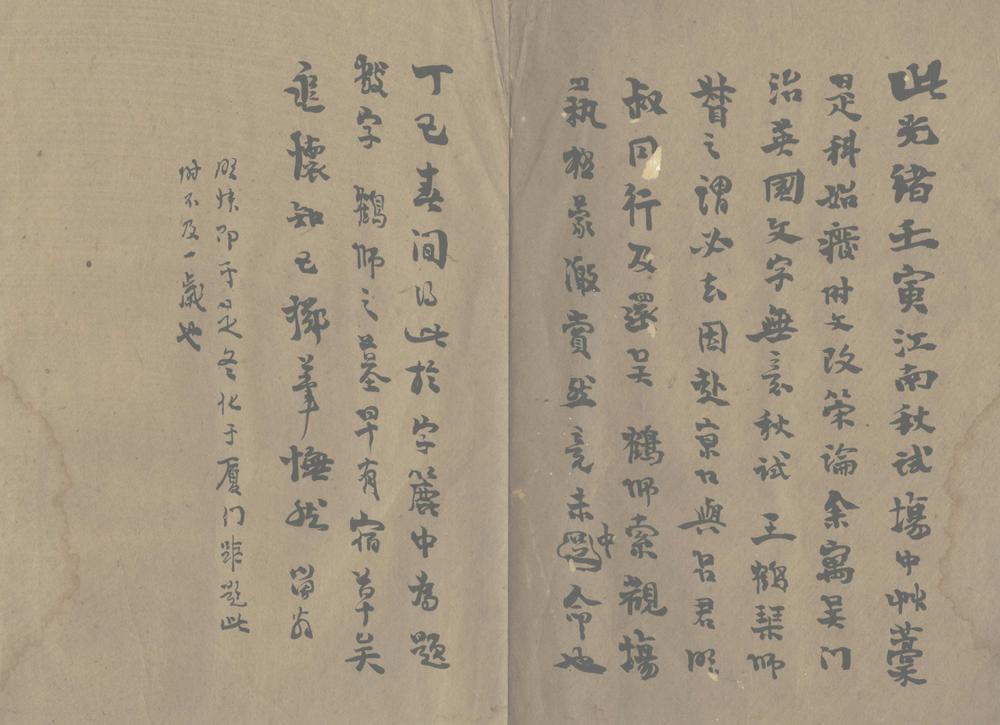 此光緒壬寅江南秋试塲中艸藁
是科始癈时文改策論余寓吴门
治英國文字無意秋试 王鶴琹师
督之謂必去因赴京口與吕君眀
叔同行及還吴 鶴师索觀塲
蓺極蒙激賞然竟未中命也
丁巳春间得此於字簏中為題
數字 鶴师之墓早有宿草矣
追懷知己擲筆憮然
眀即于是冬化于厦门距题此
时不及一歲也